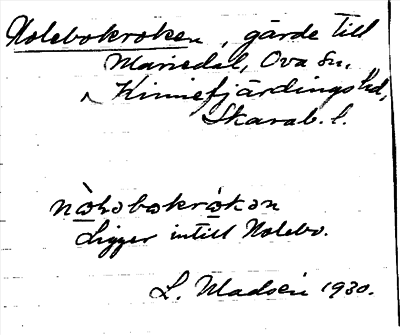 Nolebokroken, gärde till
Mariedal, Ova sn,
Kinnefjärdings hd,
Skarab. l.
nòləbəkrókən
Ligger intill Nolebo.
L. Madsén 1930.